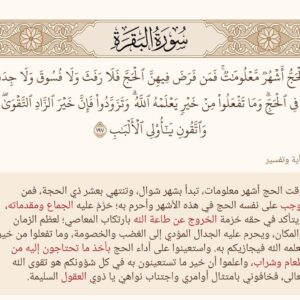 سُورَةُ البَقَرَةِ
حَجُّ أَشْهُرٌ مَّعْلُومَٰتٌ ۚ فَمَن فَرَضَ فِيهِنَّ ٱلْحَجَّ فَلَا رَفَثَ وَلَا فُسُوقَ وَلَا جِدَا
فِى ٱلْحَجِّ ۗ وَمَا تَفْعَلُوا۟ مِنْ خَيْرٍ يَعْلَمْهُ ٱللَّهُ ۗ وَتَزَوَّدُوا۟ فَإِنَّ خَيْرَ ٱلزَّادِ ٱلتَّقْوَىٰ ۚ
وَٱتَّقُونِ يَٰٓأُو۟لِى ٱلْأَلْبَٰبِ ١٩٧
ية وتفسير
قت الحج أشهر معلومات، تبدأ بشهر شوال، وتنتهي بعشر ذي الحجة، فمن
وجب على نفسه الحج في هذه الأشهر وأحرم به؛ حَرُمَ عليه الجماع ومقدماته،
يتأكد في حقه حُرْمة الخروج عن طاعة الله بارتكاب المعاصي؛ لعظم الزمان
المكان، ويحرم عليه الجدال المؤدي إلى الغضب والخصومة، وما تفعلوا من خير
علمه الله فيجازيكم به. واستعينوا على أداء الحج بأخذ ما تحتاجون إليه من
طعام وشراب، واعلموا أن خير ما تستعينون به في كل شؤونكم هو تقوى الله
عالى، فخافوني بامتثال أوامري واجتناب نواهيَّ يا ذوي العقول السليمة.